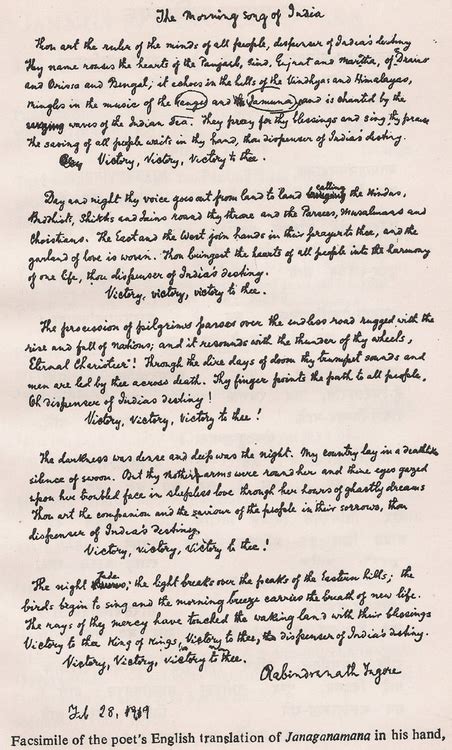 The Morning song of India
Thou art the ruler of the minds of all people, dispenser of India's destiny
Thy name rouses the hearts of the Panjaub, Sind, Gujrat and Maratha, of Dravid
and Orissa and Bengal; it echoes in the hills of the Vindhyas and Himalayas,
mingles in the music of the Ganges and the Jamuna and is chanted by the
waves of the Indian Sea. They pray for thy blessings and sing thy praise
The saving of all people waits in thy hand, thou dispenser of India's destiny.
Victory, Victory, Victory to thee.
Day and night thy voice goes out from land to land calling the Hindus,
Budhists, Shikhs and Jains round thy throne and the Parsees, Musalmans and
Christians. The East and the West join hands in their prayer to thee, and the
garland of love is woven. Thou bringest the hearts of all people into the harmony
of one life, thou dispenser of India's destiny.
Victory, victory, victory to thee.
The procession of pilgrims passes over the endless road rugged with the
rise and fall of nations; and it resounds with the thunder of thy wheels,
Eternal Charioteer! Through the dire days of doom thy trumpet sounds and
men are led by thee across death. Thy finger points the path to all people,
Oh dispenser of India's destiny!
Victory, victory, victory to thee!
The darkness was dense and deep was the night. My country lay in a deathlike
silence of swoon. But thy mother arms were round her and thine eyes gazed
upon her troubled face in sleepless love through her hours of ghastly dreams
Thou art the companion and the saviour of the people in their sorrows, thou
dispenser of India's destiny
Victory, victory, victory to thee!
The night fades; the light breaks over the peaks of the Eastern hills; the
birds begin to sing and the morning breeze carries the breath of new life.
The rays of thy mercy have touched the waking land with their blessings
Victory to thee King of Kings, Victory to thee, dispenser of India's destiny.
Victory, Victory, victory to thee.
Rabindranath Tagore
Feb 28, 1919
Facsimile of the poet's English translation of Janaganamana in his hand,